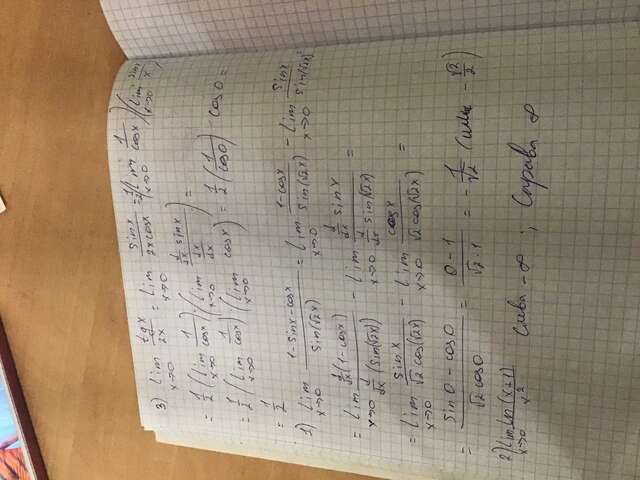 3) lim x→0 tgx/2x = lim x→0 sinx/2xcosx = 1/2 (lim x→0 1/cosx)(lim x→0 sinx/x)
= 1/2 (lim x→0 1/cosx)(lim x→0 d/dx sinx / dx/dx) =
= 1/2 (lim x→0 1/cosx)(lim x→0 cosx) = 1/2 (1/cos0) cos0 =
= 1/2
1) lim x→0 1-sinx-cosx/sin(√2x) = lim x→0 1-cosx/sin(√2x) - lim x→0 sinx/sin(√2x) =
= lim x→0 d/dx(1-cosx) / d/dx(sin(√2x)) - lim x→0 d/dx sinx / d/dx sin(√2x) =
= lim x→0 sinx/√2cos(√2x) - lim x→0 cosx/√2cos(√2x) =
= sin0-cos0/√2cos0 = 0-1/√2·1 = -1/√2 (или -√2/2)
2) lim x→0 ln(x+1)/x² Слева -∞; Справа ∞